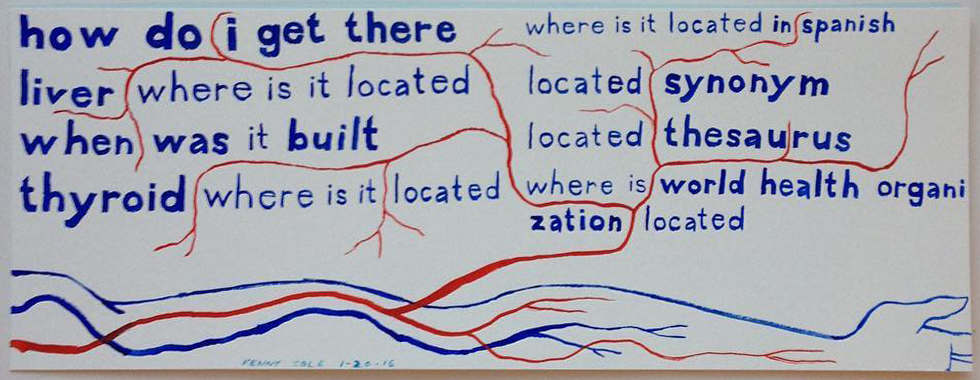 how do i get there
liver where is it located
when was it built
thyroid where is it located
where is it located in spanish
located synonym
located thesaurus
where is world health organi
zation located
1-20-16